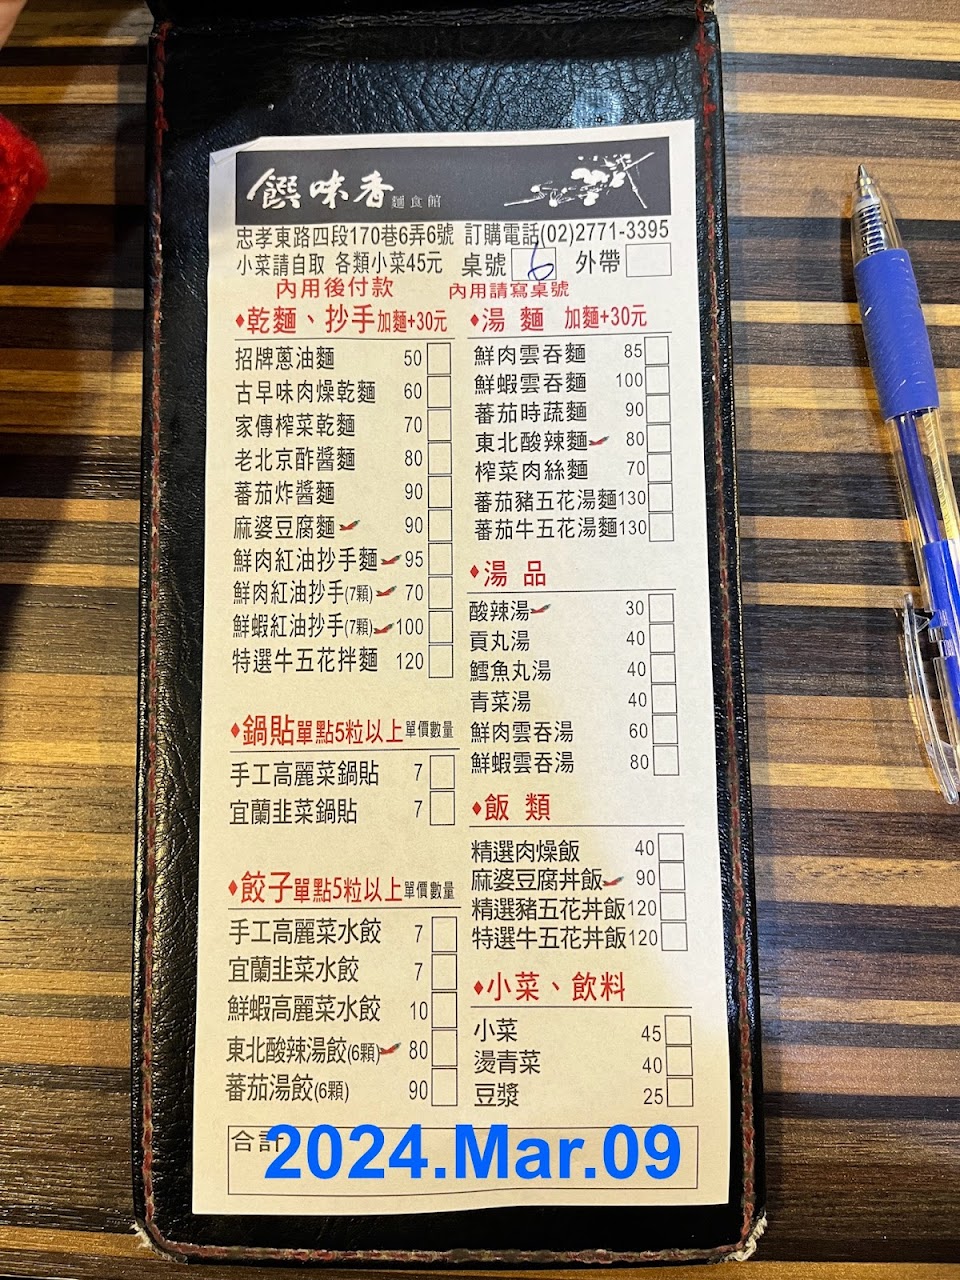 饌味香 麵食館
忠孝東路四段170巷6弄6號 訂購電話(02)2771-3395
小菜請自取 各類小菜45元 桌號 6 外帶
內用後付款 內用請寫桌號
乾麵、抄手加麵+30元
招牌蔥油麵 50
古早味肉燥乾麵 60
家傳榨菜乾麵 70
老北京酢醬麵 80
蕃茄炸醬麵 90
麻婆豆腐麵 90
鮮肉紅油抄手麵 95
鮮肉紅油抄手(7顆) 70
鮮蝦紅油抄手(7顆) 100
特選牛五花拌麵 120
鍋貼單點5粒以上單價數量
手工高麗菜鍋貼 7
宜蘭韭菜鍋貼 7
餃子單點5粒以上單價數量
手工高麗菜水餃 7
宜蘭韭菜水餃 7
鮮蝦高麗菜水餃 10
東北酸辣湯餃(6顆) 80
蕃茄湯餃(6顆) 90
湯 麵 加麵+30元
鮮肉雲吞麵 85
鮮蝦雲吞麵 100
蕃茄時蔬麵 90
東北酸辣麵 80
榨菜肉絲麵 70
蕃茄豬五花湯麵130
蕃茄牛五花湯麵130
湯 品
酸辣湯 30
貢丸湯 40
鱈魚丸湯 40
青菜湯 40
鮮肉雲吞湯 60
鮮蝦雲吞湯 80
飯 類
精選肉燥飯 40
麻婆豆腐丼飯 90
精選豬五花丼飯120
特選牛五花丼飯120
小菜、飲料
小菜 45
燙青菜 40
豆漿 25
合計
2024.Mar.09